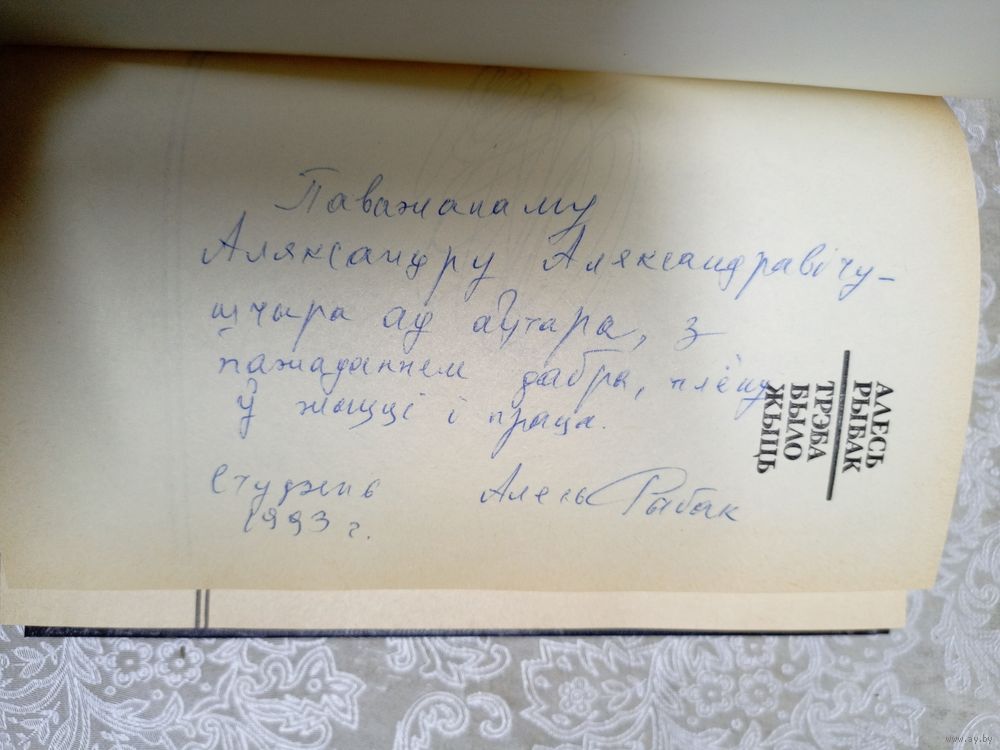 Паважанаму
Аляксандру Аляксандравічу –
шчыра ад аўтара, з
пажаданнем дабра, плёну
ў жыцці і праца.
Студзень
1993 г.
Алесь Рыбак
АЛЕСЬ
РЫБАК
ТРЭБА
БЫЛО
ЖЫЦЬ
www.ay.by